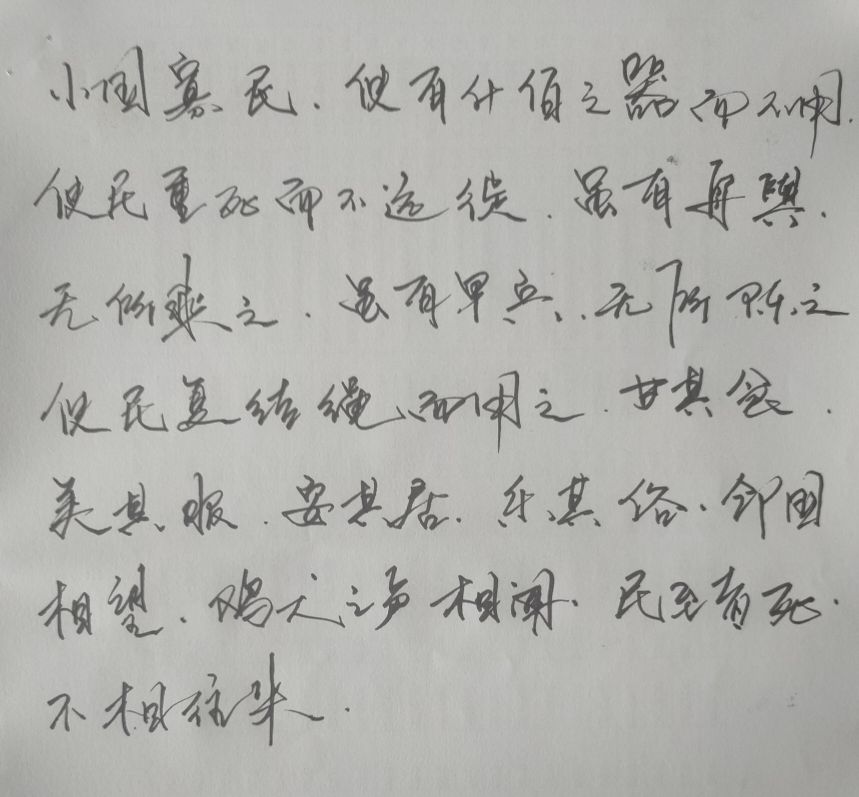 小国寡民.使有什佰之器而不用.
使民重死而不远徙.虽有舟舆.
无所乘之.虽有甲兵.无所陈之
使民复结绳而用之.甘其食.
美其服.安其居.乐其俗.邻国
相望.鸡犬之声相闻.民至老死.
不相往来.